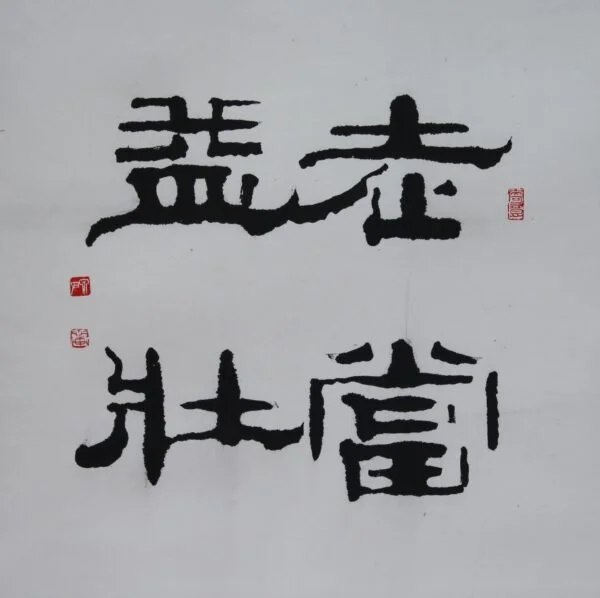 老當
益壯